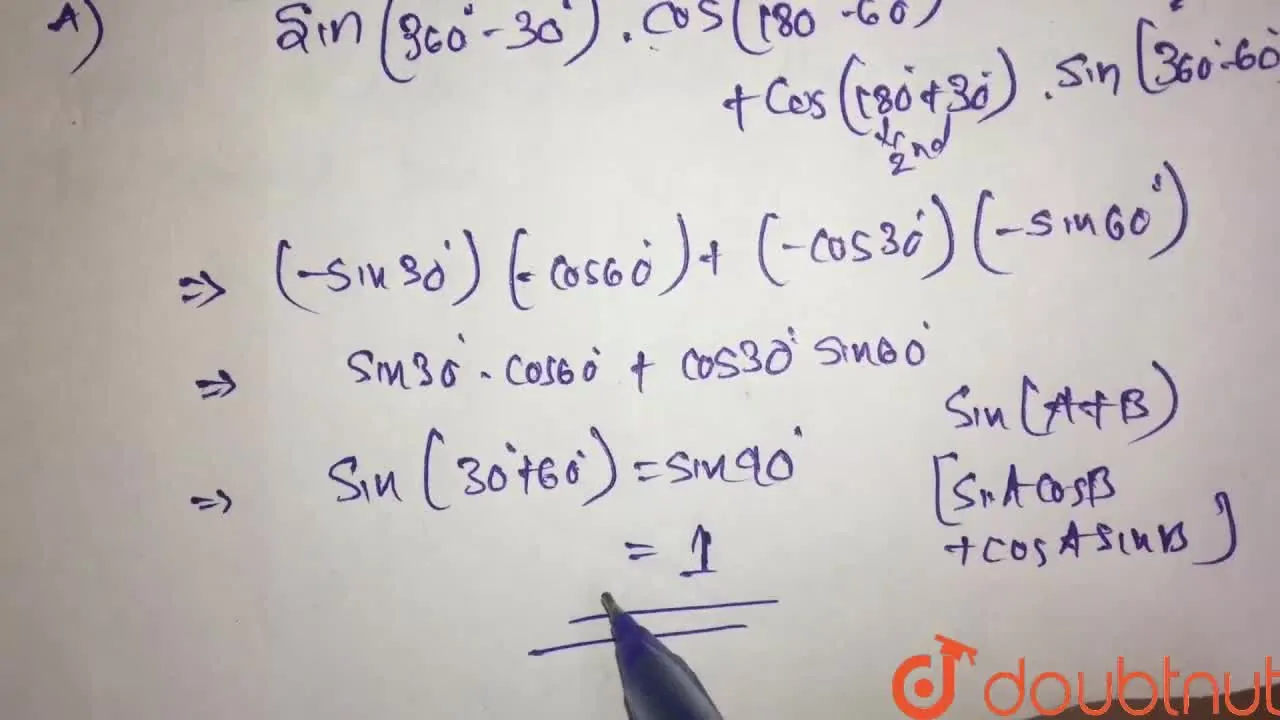 A) Sin (360° - 30°) . Cos (180 - 60)
+ Cos (180° + 30°) . Sin (360° - 60°
2nd
⇒ (-Sin 30°) (- Cos 60°) + (-Cos 30°) (- Sin 60°)
⇒ Sin 30° . Cos 60° + Cos 30° Sin 60°
Sin (A+B)
⇒ Sin (30° + 60°) = Sin 90°
[Sin A Cos B
+ Cos A Sin B]
= 1
doubtnut